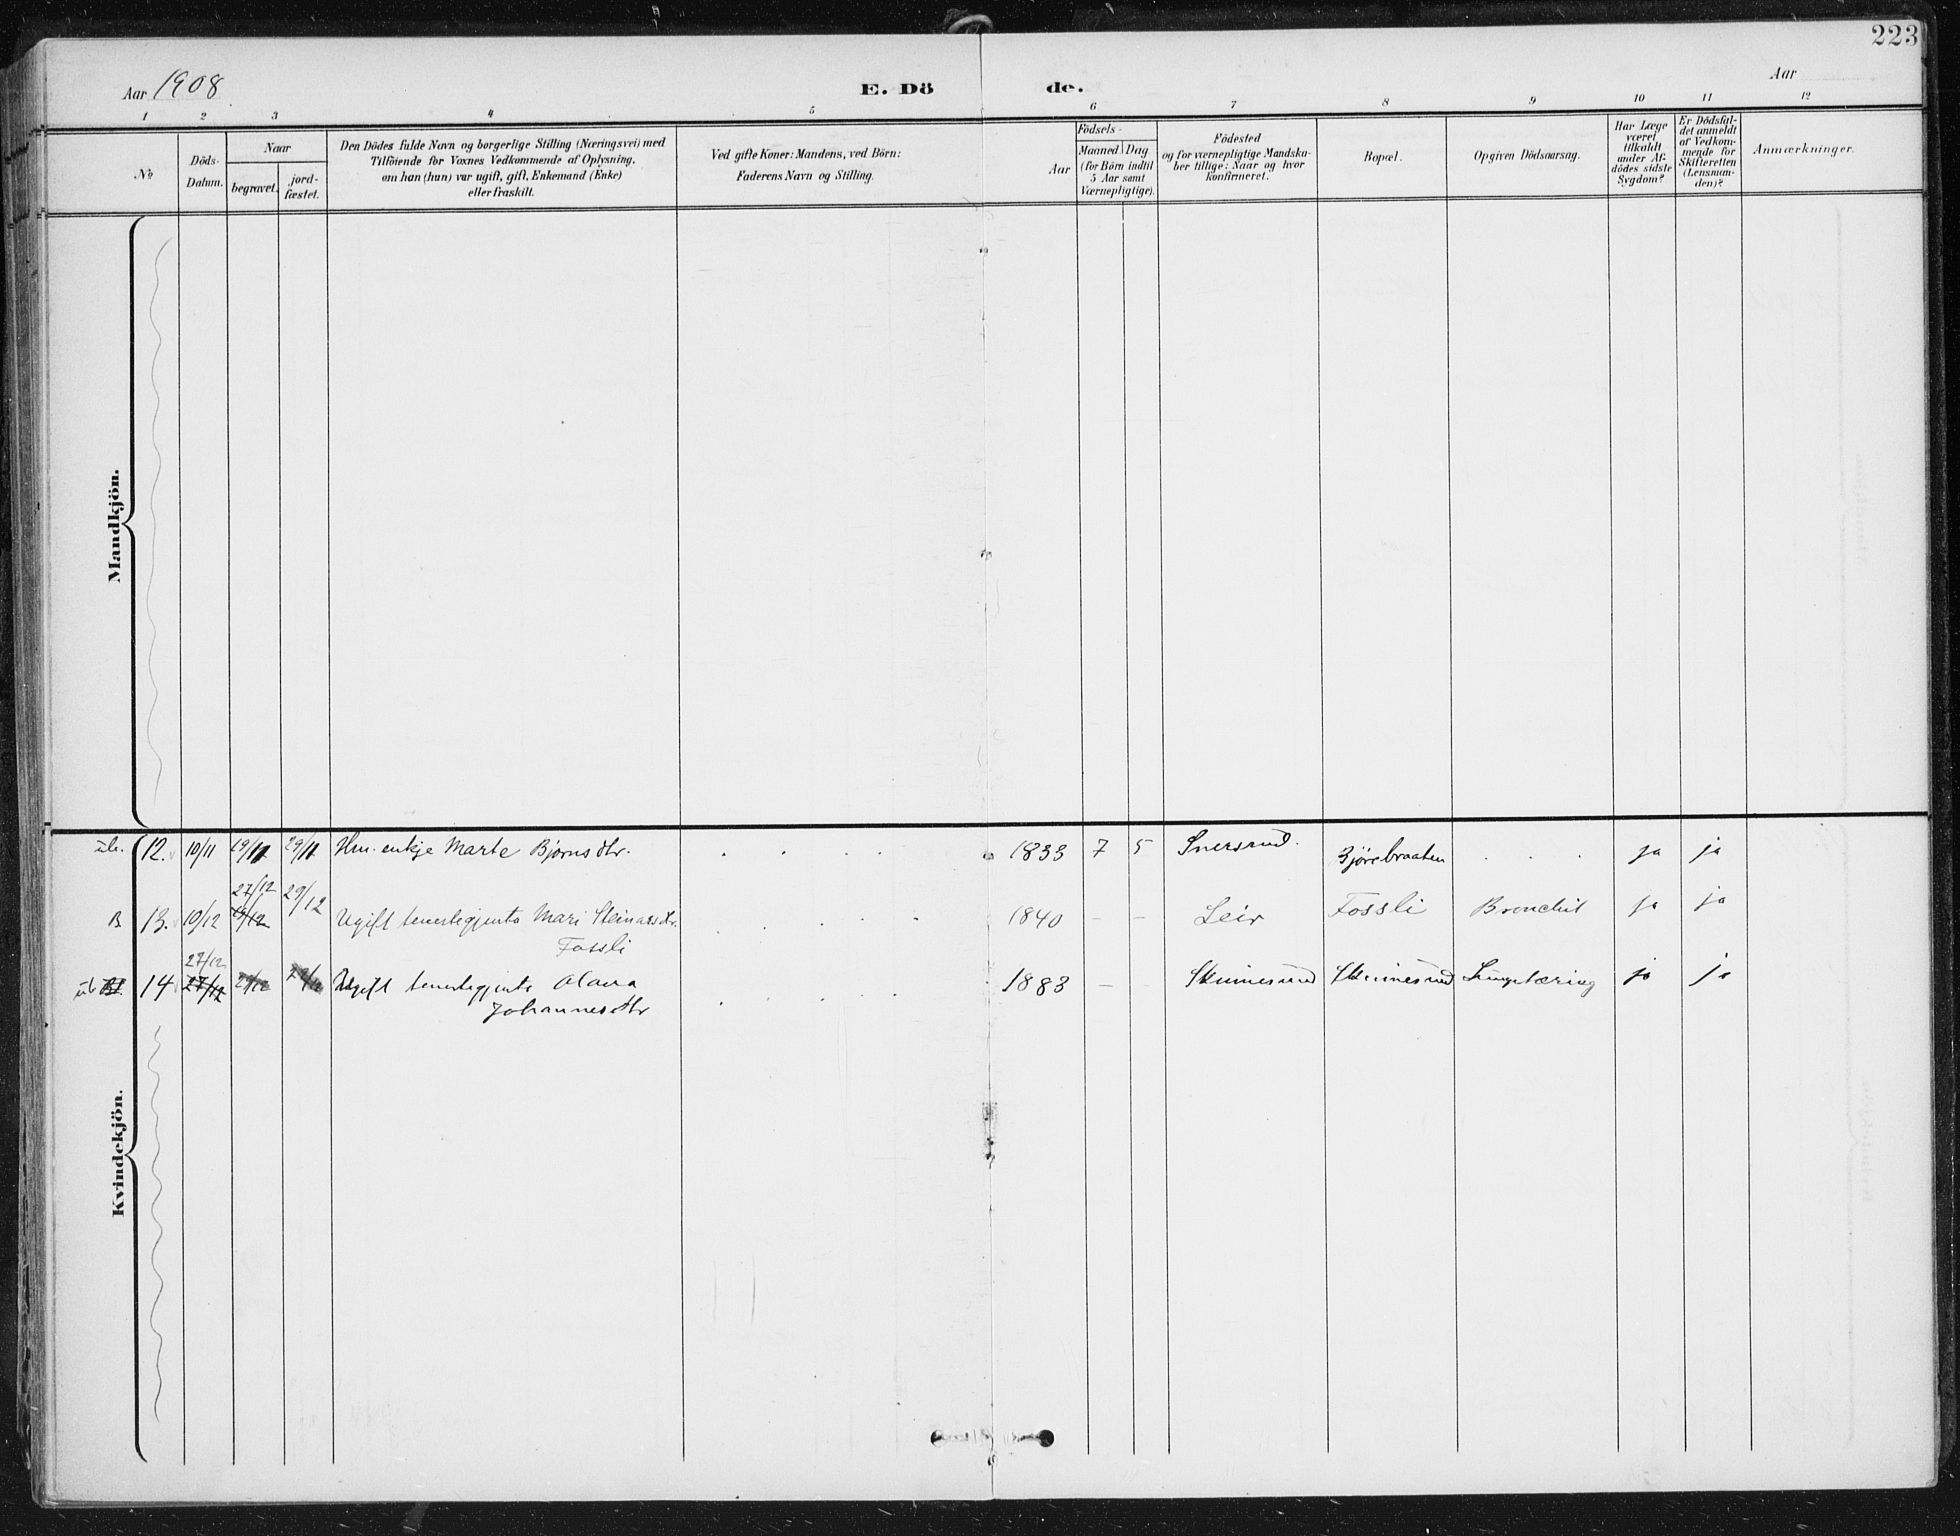 223
Aar 1908
E. Dö
de.
Aar
1 2 3 4 5 6 7 8 9 10 11 12
No
Döds-
Datum.
Naar
begravet.
jord-
fæstet.
Den Dödes fulde Navn og borgerlige Stilling (Næringsvei) med
Tilföiende for Voxnes Vedkommende af Oplysning,
om han (hun) var ugift, gift, Enkemand (Enke)
eller fraskilt.
Ved gifte Koner: Mandens, ved Börn:
Faderens Navn og Stilling.
Födsels-
Aar
Maaned Dag
(for Börn indtil
5 Aar samt
Værnepligtige).
Födested
og for værnepligtige Mandska-
ber tillige: Naar og hvor
konfirmeret.
Bopæl.
Opgiven Dödsaarsag.
Har Læge
været
tilkaldt
under Af-
dödes sidste
Sygdom?
Er Dödsfal-
det anmeldt
af Vedkom-
mende for
Skifteretten
(Lensman-
den)?
Anmærkninger.
Mandkjön.
12. 10/11 29/11 Hm. enkje Marte Bjørnsdtr. 1833 7 5 Snersrud. Bjørebraaten ja ja
27/12 29/12
B 13. 10/12 19/12 Ugift tenestegjenta Mari Steinarsdtr. 1840 – – Leir Fossli Bronchit ja ja
Fossli
27/12
14 27/12 Ugift tenestegjenta Olava 1883 – – Skinnesrud Skinnesrud Lungetæring ja ja
Johannesdtr
Kvindekjön.